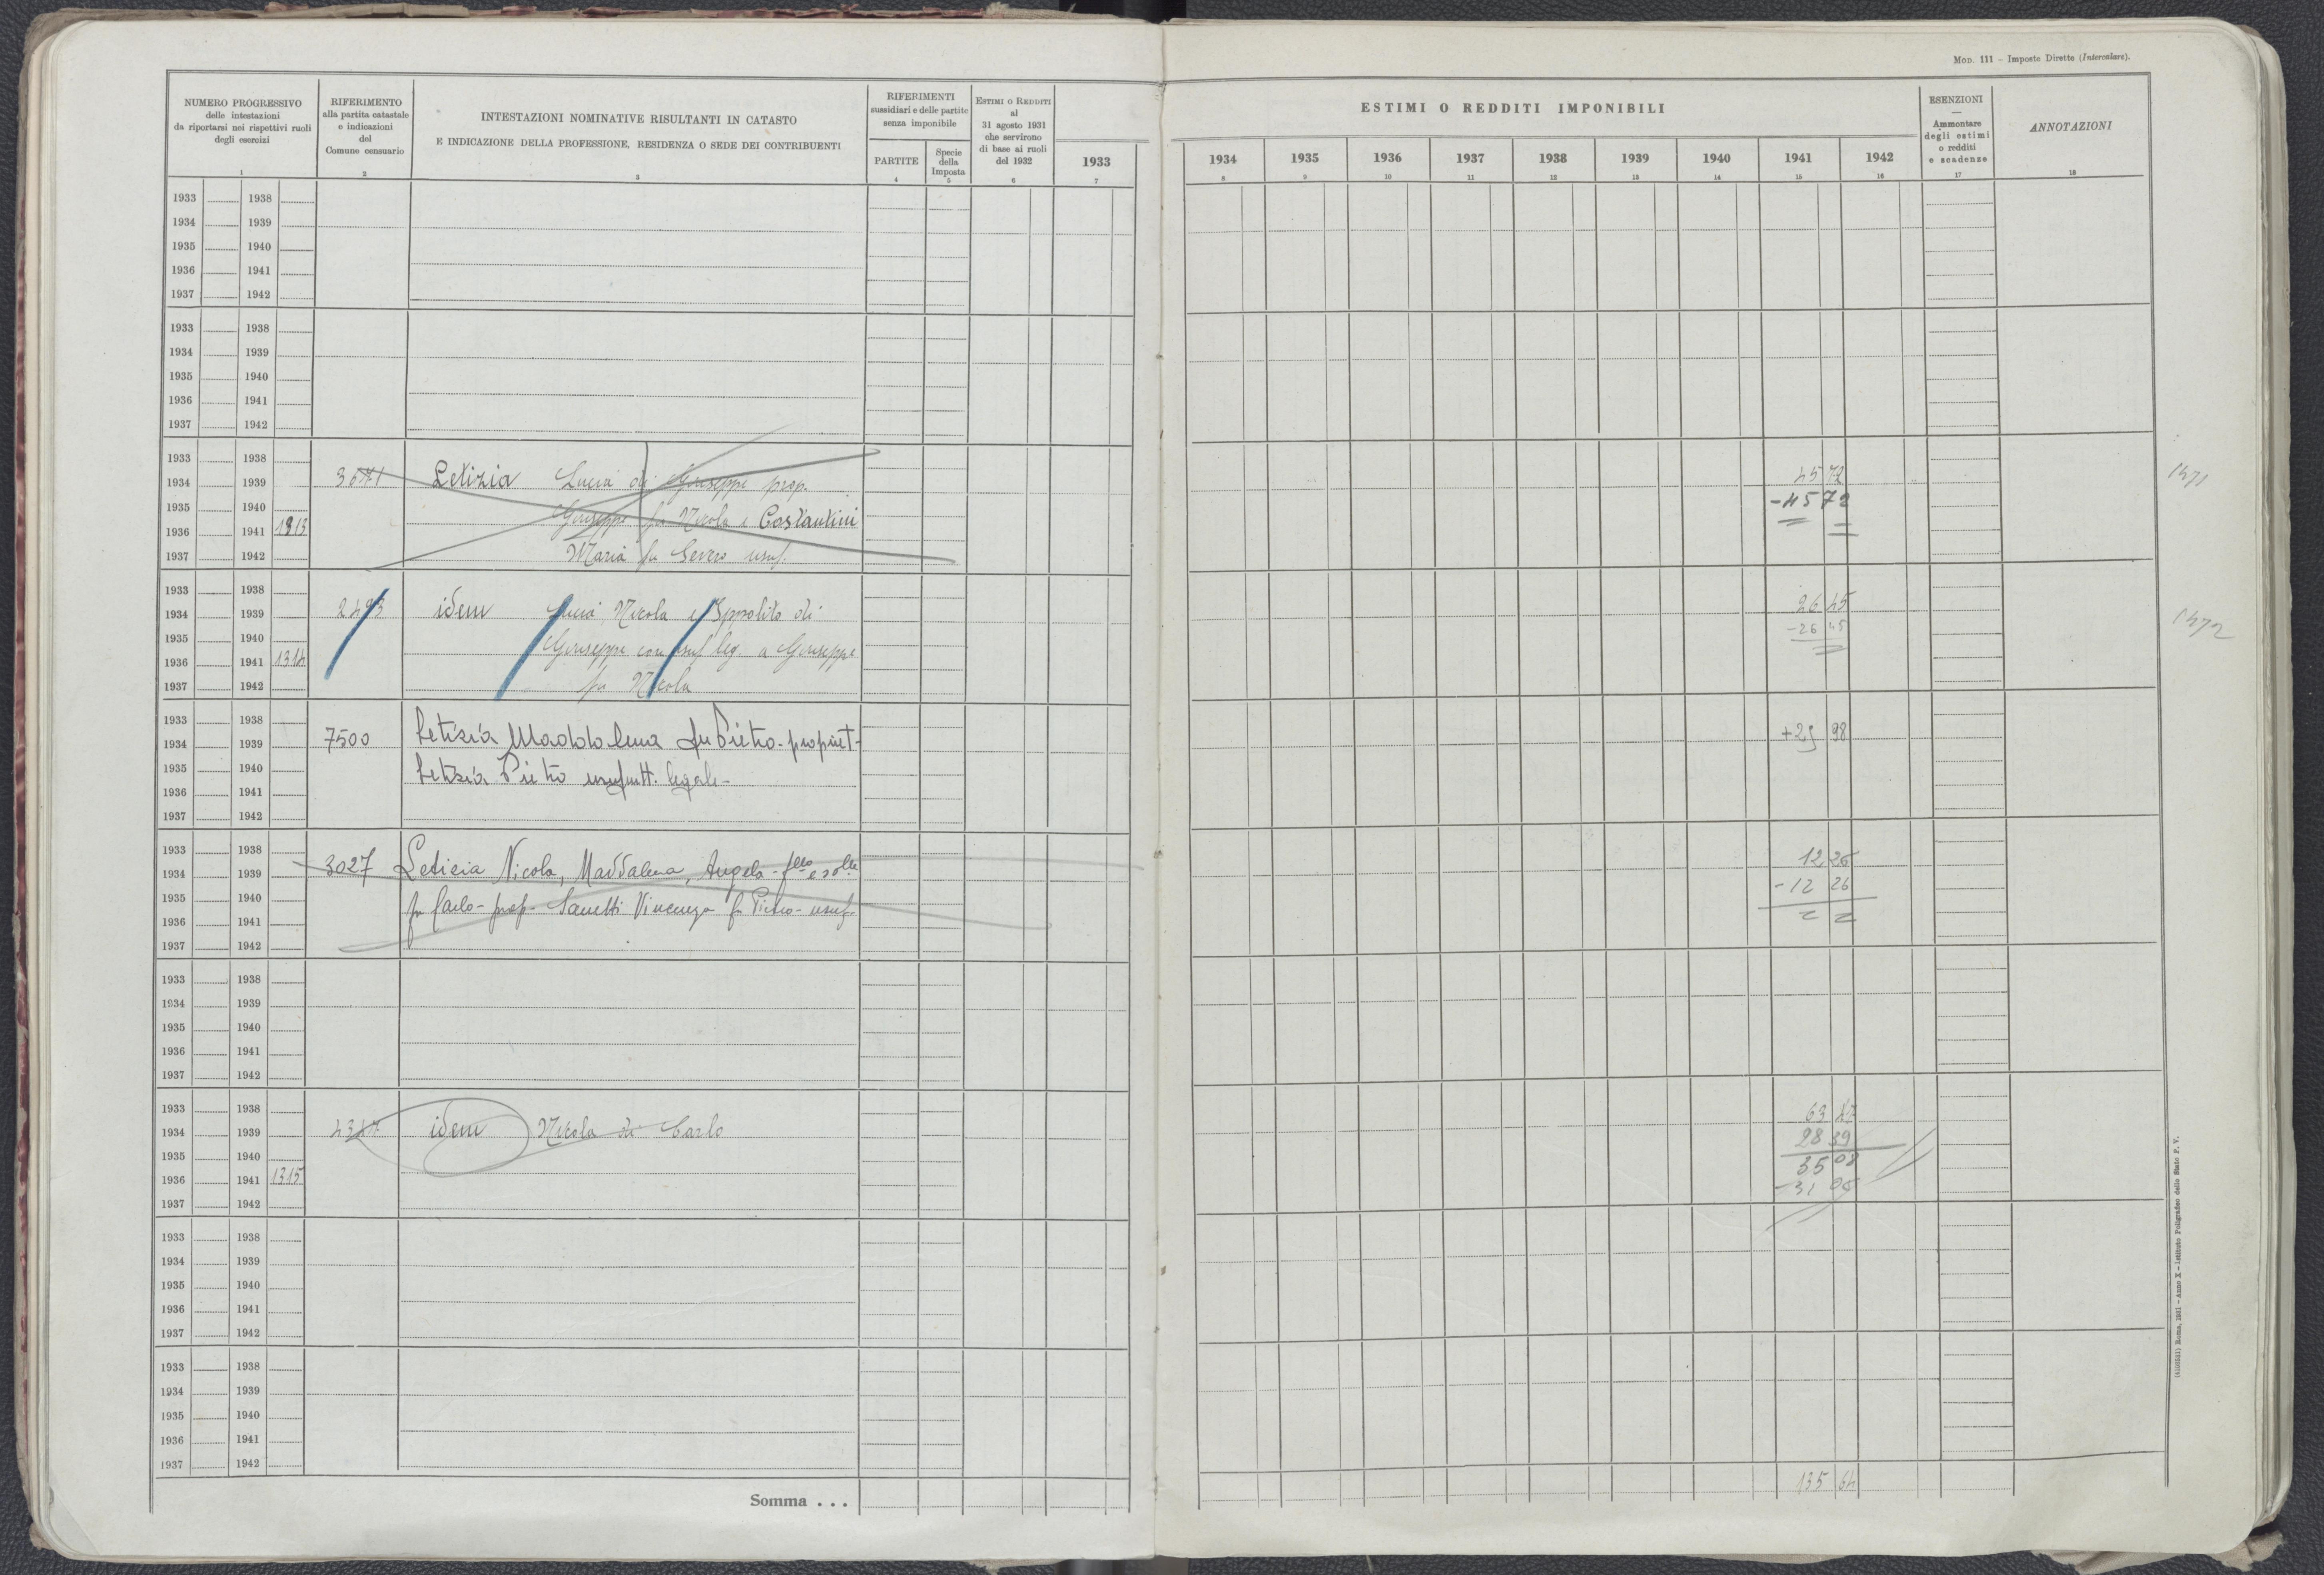 Mod. 111 – Imposte Dirette (Intercalare).
NUMERO PROGRESSIVO
delle intestazioni
da riportarsi nei rispettivi ruoli
degli esercizi
1
RIFERIMENTO
alla partita catastale
e indicazioni
del
Comune censuario
2
INTESTAZIONI NOMINATIVE RISULTANTI IN CATASTO
E INDICAZIONE DELLA PROFESSIONE, RESIDENZA O SEDE DEI CONTRIBUENTI
3
RIFERIMENTI
sussidiari e delle partite
senza imponibile
PARTITE
4
Specie
della
Imposta
5
Estimi o Redditi
al
31 agosto 1931
che servirono
di base ai ruoli
del 1932
6
1933
7
ESTIMI O REDDITI IMPONIBILI
1934 1935 1936 1937 1938 1939 1940 1941 1942
8 9 10 11 12 13 14 15 16
ESENZIONI
—
Ammontare
degli estimi
o redditi
e scadenze
17
ANNOTAZIONI
18
1933 1938
1934 1939
1935 1940
1936 1941
1937 1942
1933 1938
1934 1939
1935 1940
1936 1941
1937 1942
1933 1938
1934 1939 Letizia Lucia di Giuseppe prop. 45 72 1471
1935 1940 Giuseppe fu Nicola e Costantini -45 72
1936 1941 1313
1937 1942 Maria fu Severo usuf.
1933 1938
1934 1939 2493 idem Lucia Nicola e Ippolito di 26 45 1472
1935 1940 Giuseppe con usuf leg. a Giuseppe -26 45
1936 1941 1314
1937 1942 fu Nicola
1933 1938
1934 1939 7500 Letizia Maddalena fu Pietro - propriet - +25 98
1935 1940 Letizia Pietro usufrutt. legale -
1936 1941
1937 1942
1933 1938
1934 1939 3027 Letizia Nicola, Maddalena, Angela - flli e slle 12 26
1935 1940 fu Carlo - prop - Vincenza fu Pietro - usuf - -12 26
1936 1941
1937 1942
1933 1938
1934 1939
1935 1940
1936 1941
1937 1942
1933 1938 63 47
1934 1939 idem Nicola di Carlo 28 39
1935 1940 35 08
1936 1941 1315 -31 06
1937 1942
1933 1938
1934 1939
1935 1940
1936 1941
1937 1942
1933 1938
1934 1939
1935 1940
1936 1941
1937 1942
Somma . . . 135 64
(4100531) Roma, 1931 – Anno X – Istituto Poligrafico dello Stato P. V.